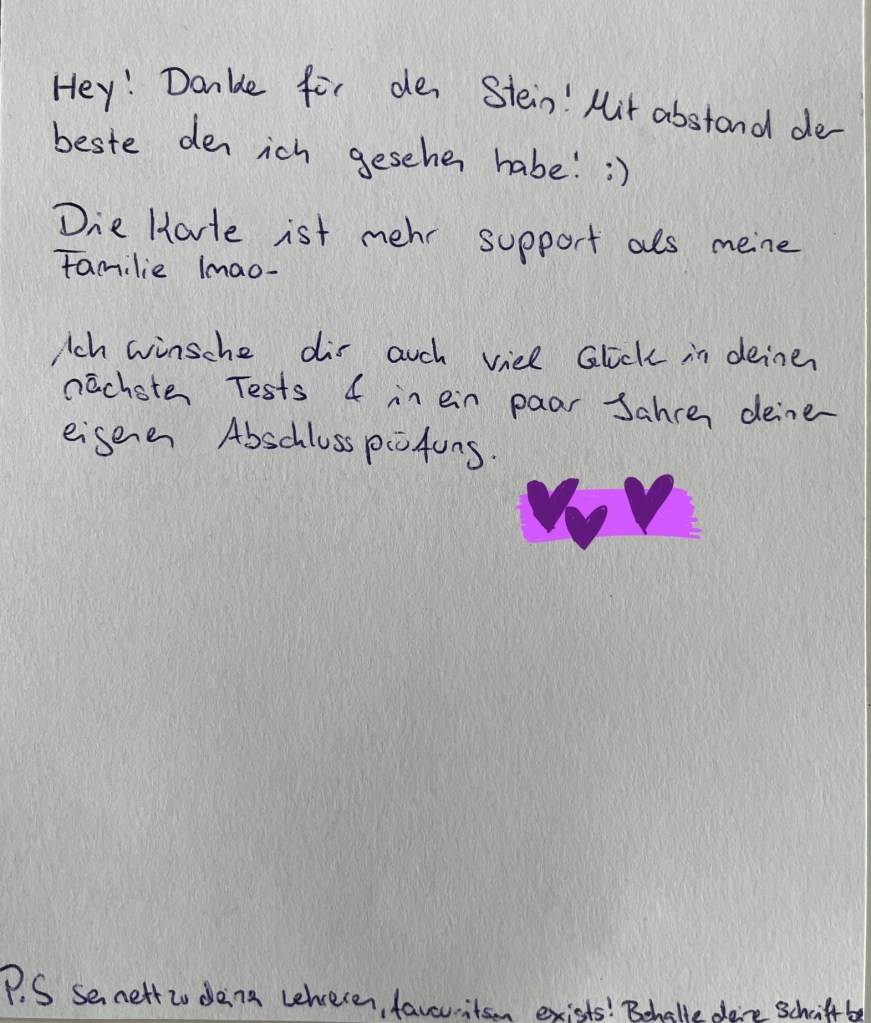 Hey! Danke für den Stein! Mit abstand der
beste den ich gesehen habe! :)
Die Karte ist mehr support als meine
Familie lmao-
Ich wünsche dir auch viel Glück in deinen
nächsten Tests & in ein paar Jahren deiner
eigenen Abschlussprüfung.
P.S Sei nett zu deinen Lehreren, favouritsm exists! Behalte deine Schrift be